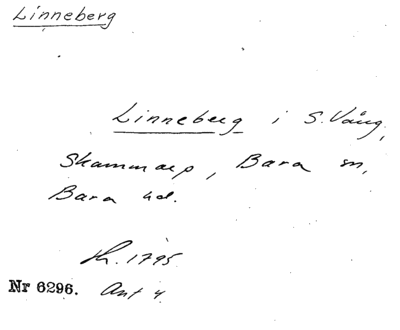 Linneberg
Linneberg i S. Vång,
Skammarp, Bara sn,
Bara hd.
1795
Nr 6296. Akt 4